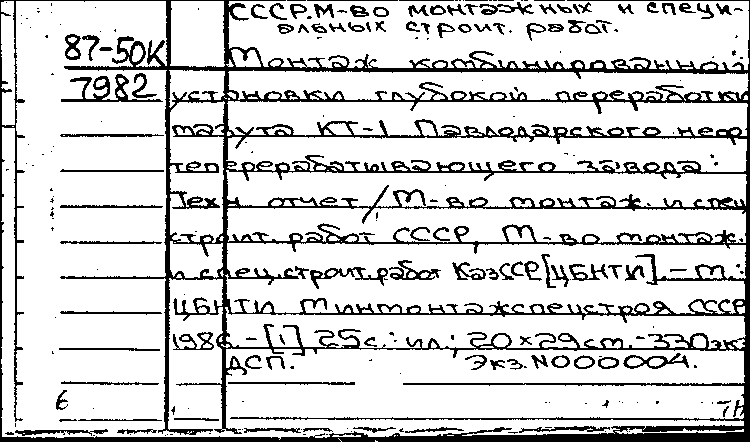 СССР. М-во монтажных и специ-
альных строит. работ.
87-50К Монтаж комбинированной
7982 установки глубокой переработки
мазута КТ-1 Павлодарского неф
теперерабатывающего завода:
Техн отчет / М-во монтаж. и спец
строит. работ СССР, М-во монтаж.
и спец. строит. работ КазССР [ЦБНТИ]. - М.:
ЦБНТИ Минмонтажспецстроя СССР
1986. - [1], 25с.: ил.; 20×29см. - 330экз
ДСП. Экз. N000004.
6